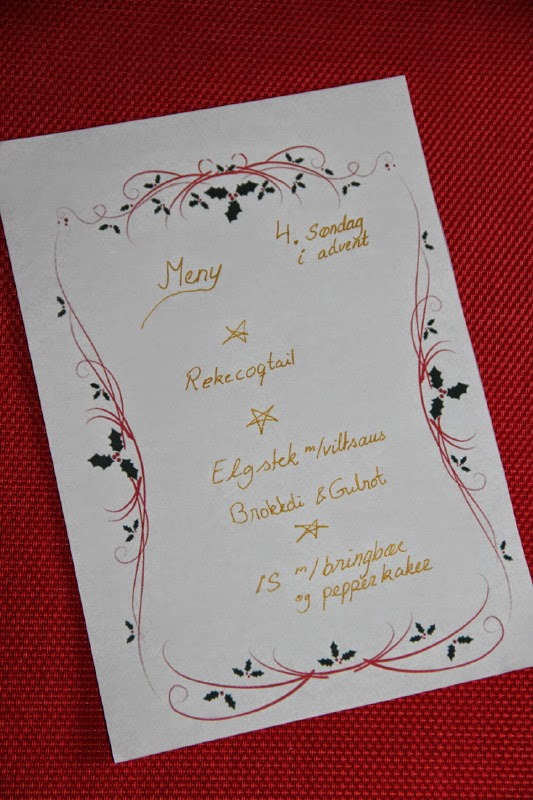 Meny
4. Søndag
i advent
Røkecoqtail
Elgstek m/viltsaus
Brokkoli & Gulrot
IS m/bringbær
og pepperkaker